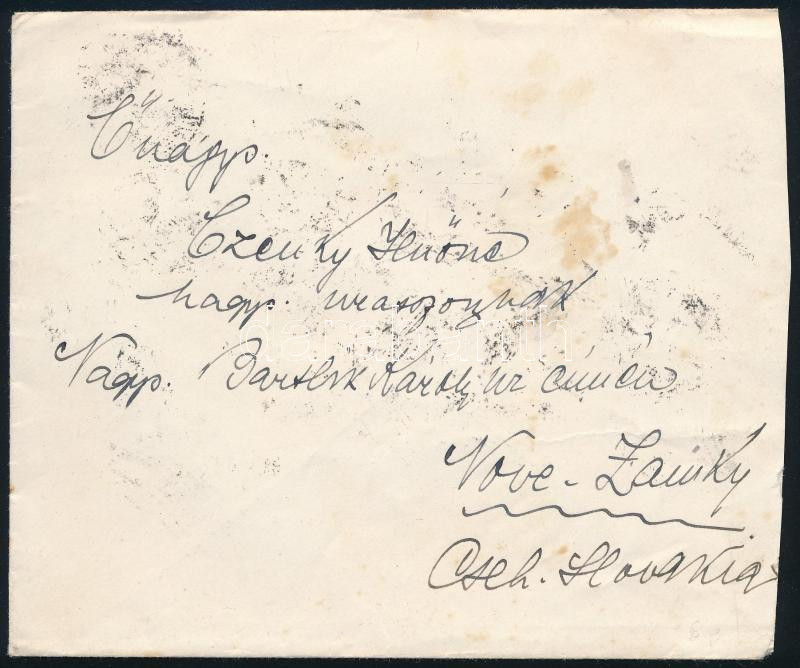 Őnagys.
Czenky Ernőné
nagys. uraszonynak
Nagys. Bartek Károly úr címén
Nove-Zamky
Cseh. Slovakia
darabanth